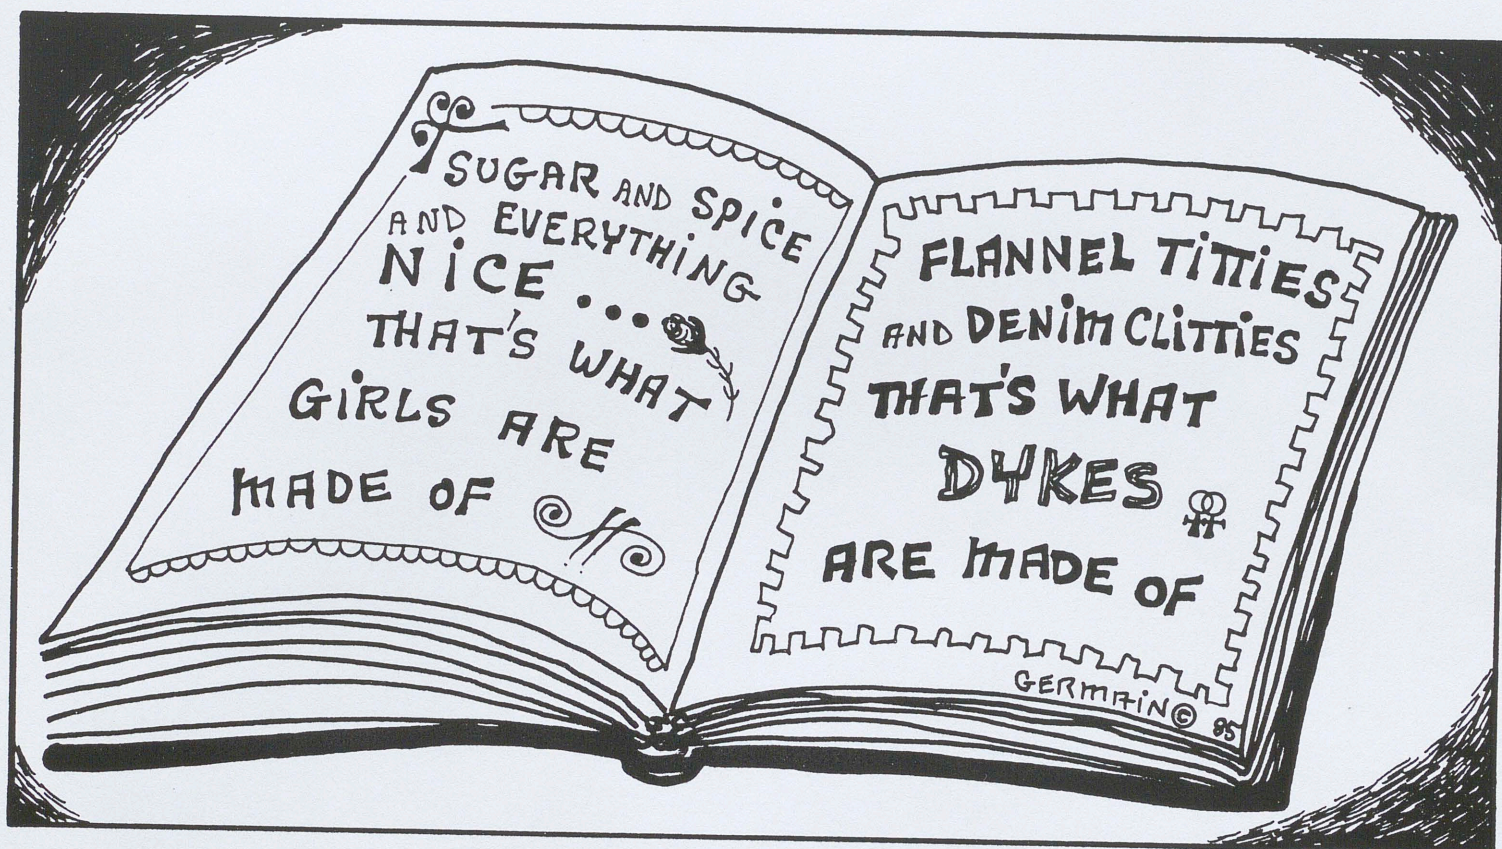 SUGAR AND SPICE
AND EVERYTHING
NiCE...
THAT'S WHAT
GiRLS ARE
MADE OF
FLANNEL TiTTiES
AND DENiM CLiTTiES
THAT'S WHAT
DYKES
ARE MADE OF
GERMAiN © 85